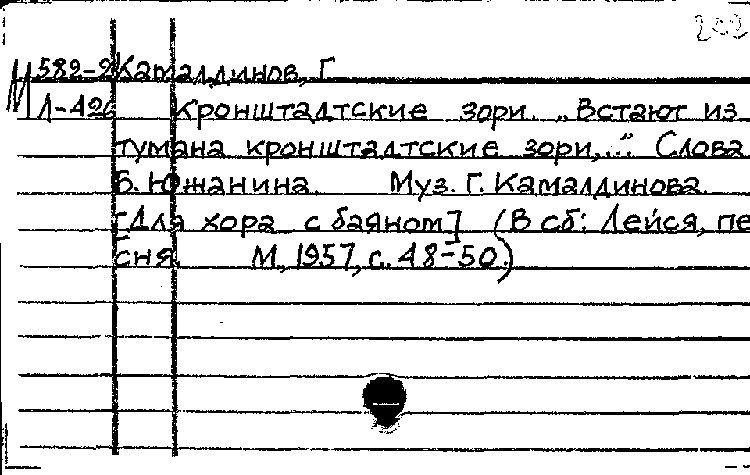 М 582-2 Камалдинов, Г
Л-426 Кронштадтские зори. „Встают из
тумана кронштадтские зори,..." Слова
Б. Южанина. Муз. Г. Камалдинова.
[Для хора с баяном] (В сб: Лейся, пе
сня. М, 1957, с. 48-50.)